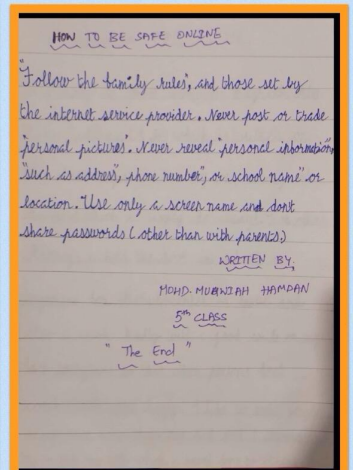 HOW TO BE SAFE ONLINE
"Follow the family rules", and those set by
the internet service provider. Never post or trade
"personal pictures". Never reveal "personal information",
"such as address", phone number", or school name" or
location. Use only a screen name and dont
share passwords (other than with parents.)
WRITTEN BY.
MOHD. MUAWIAH HAMDAN
5th CLASS
" The End "